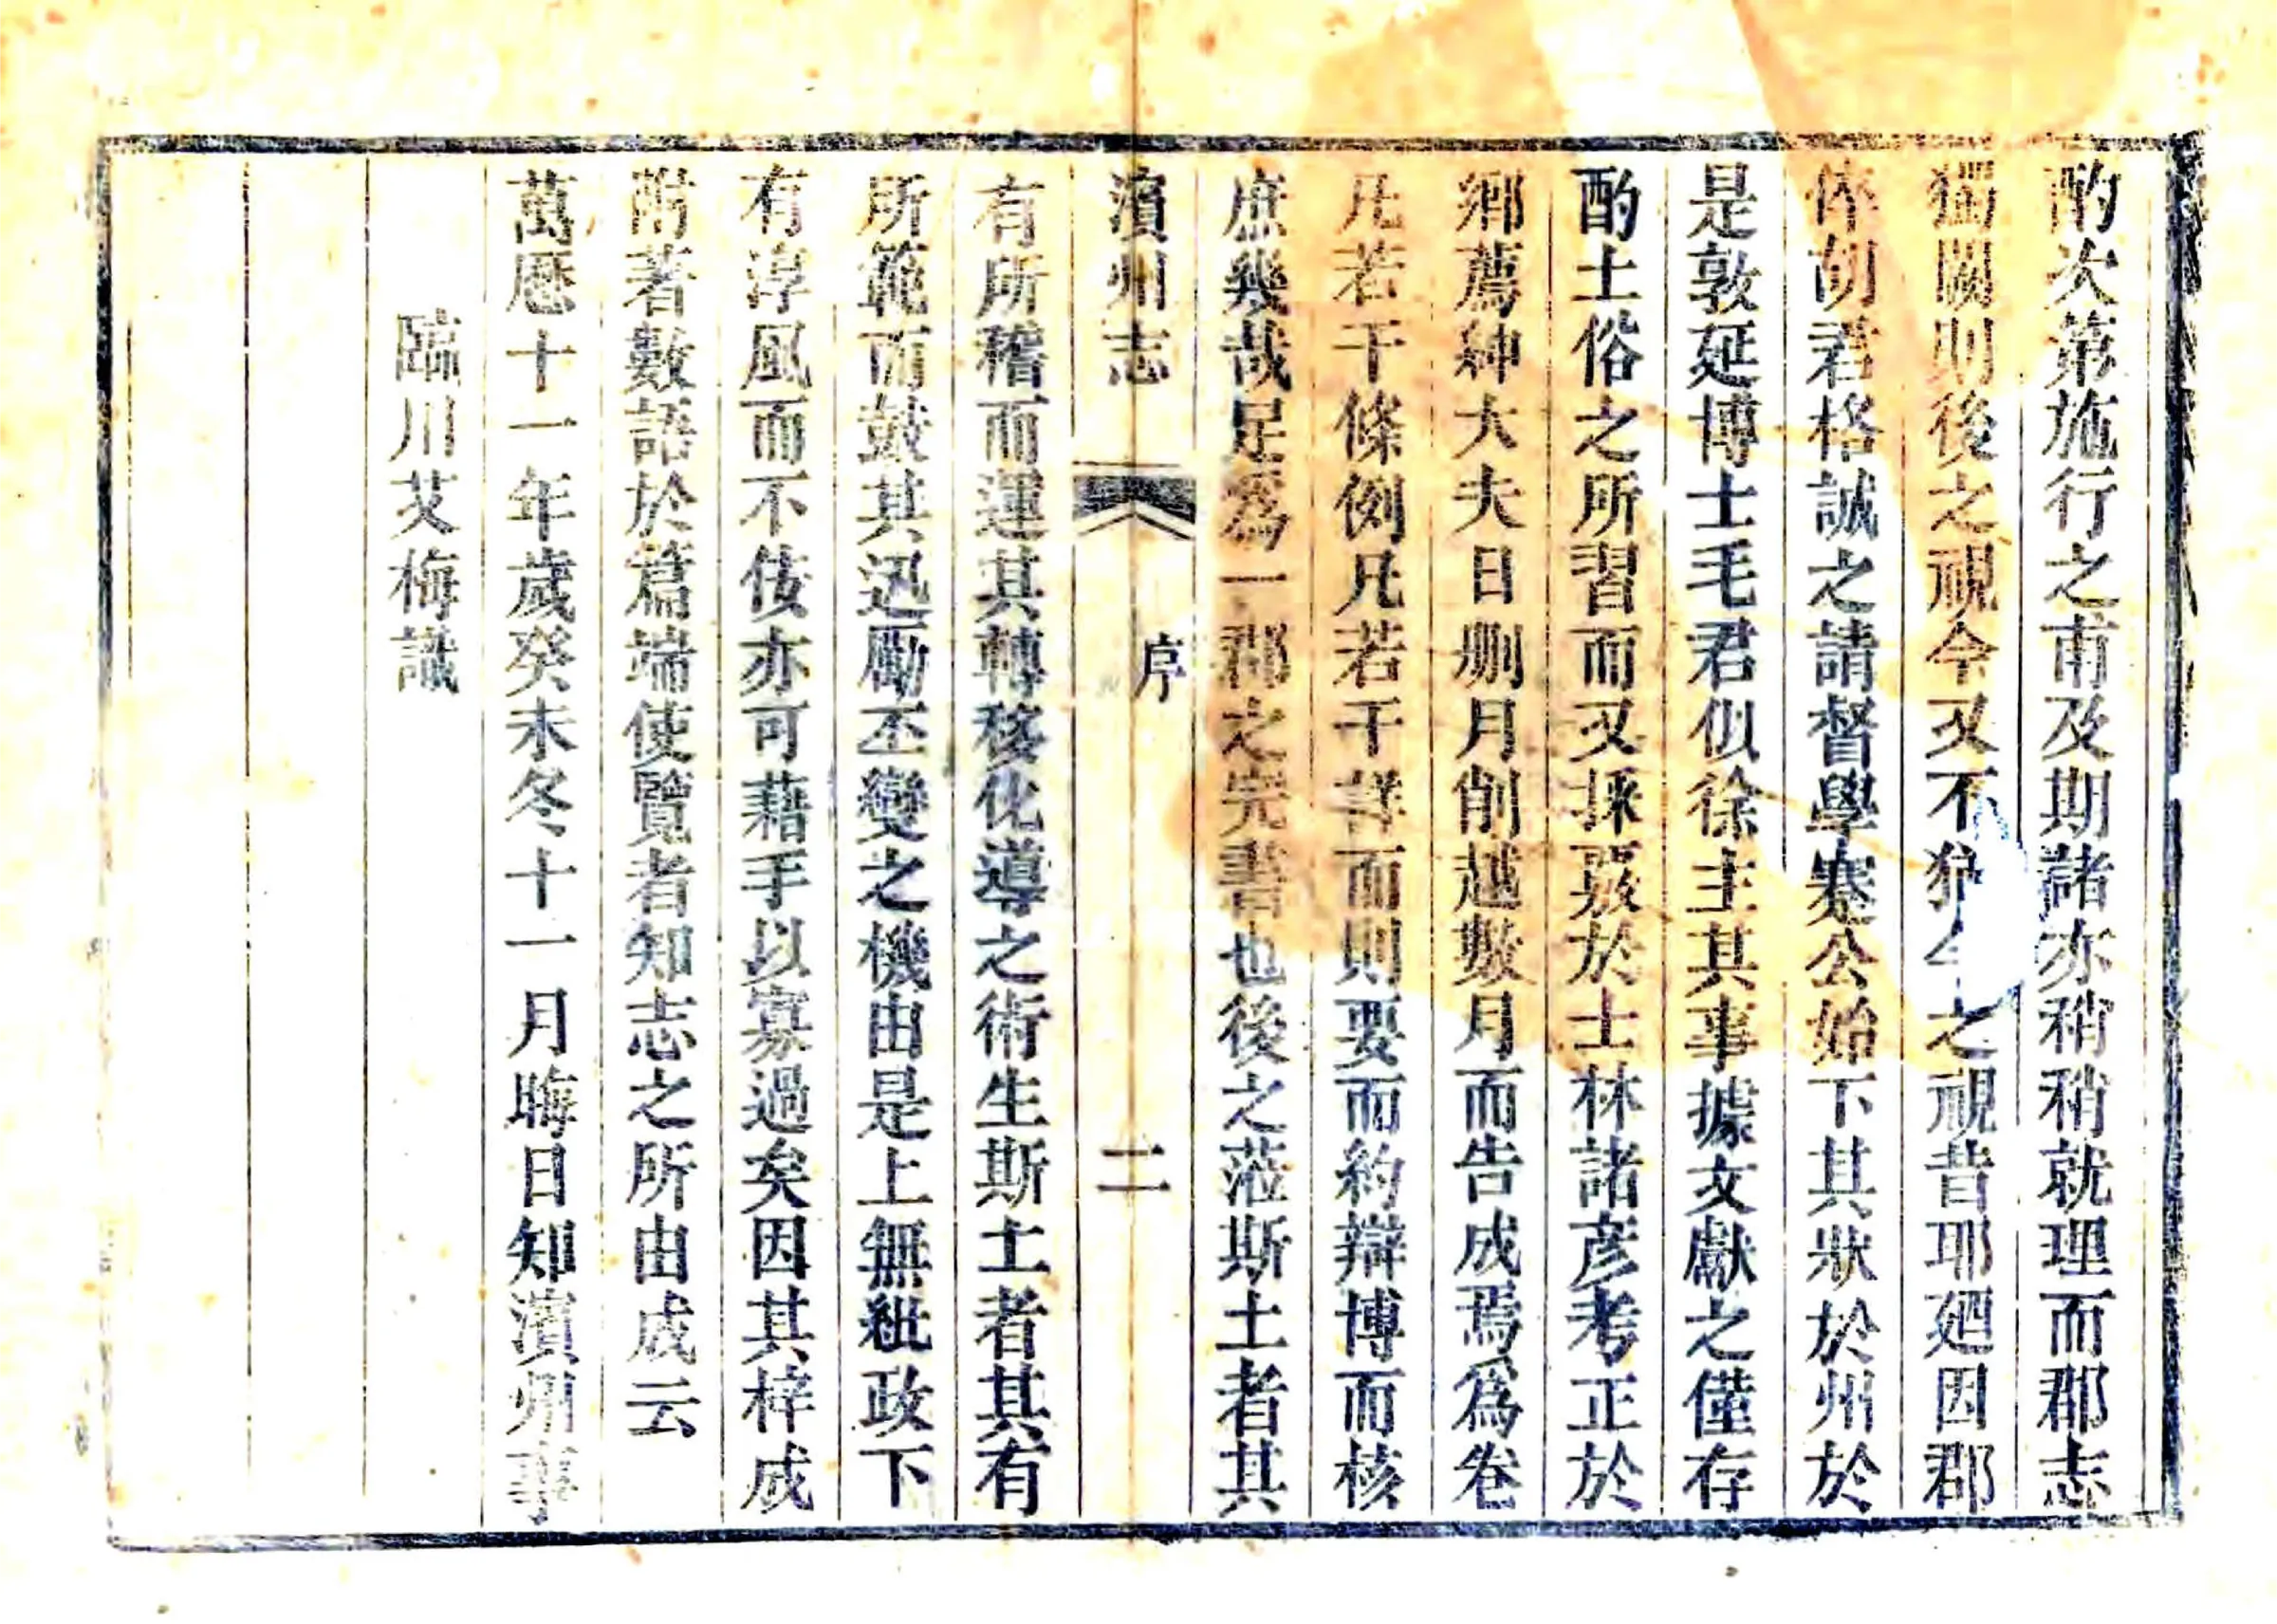 酌次第施行之甫及期諸亦稍稍就理而郡志
獨闕則後之視今又不猶今之視昔耶廼因郡
倅胡君格誠之請督學蹇公始下其狀於州於
是敦延博士毛君似徐主其事據文獻之僅存
酌土俗之所習而又採覈於士林諸彥考正於
鄉薦紳大夫日刪月削越數月而告成焉為卷
凡若干條例凡若干詳而則要而約辯博而核
庶幾哉足爲一郡之完書也後之蒞斯土者其
濱州志
序
二
有所稽而運其轉移化導之術生斯土者其有
所範而鼓其迅勵丕變之機由是上無紕政下
有淳風而不佞亦可藉手以寡過矣因其梓成
附著數語於篇端使覽者知志之所由成云
萬曆十一年歲癸未冬十一月晦日知濱州事
臨川艾梅識